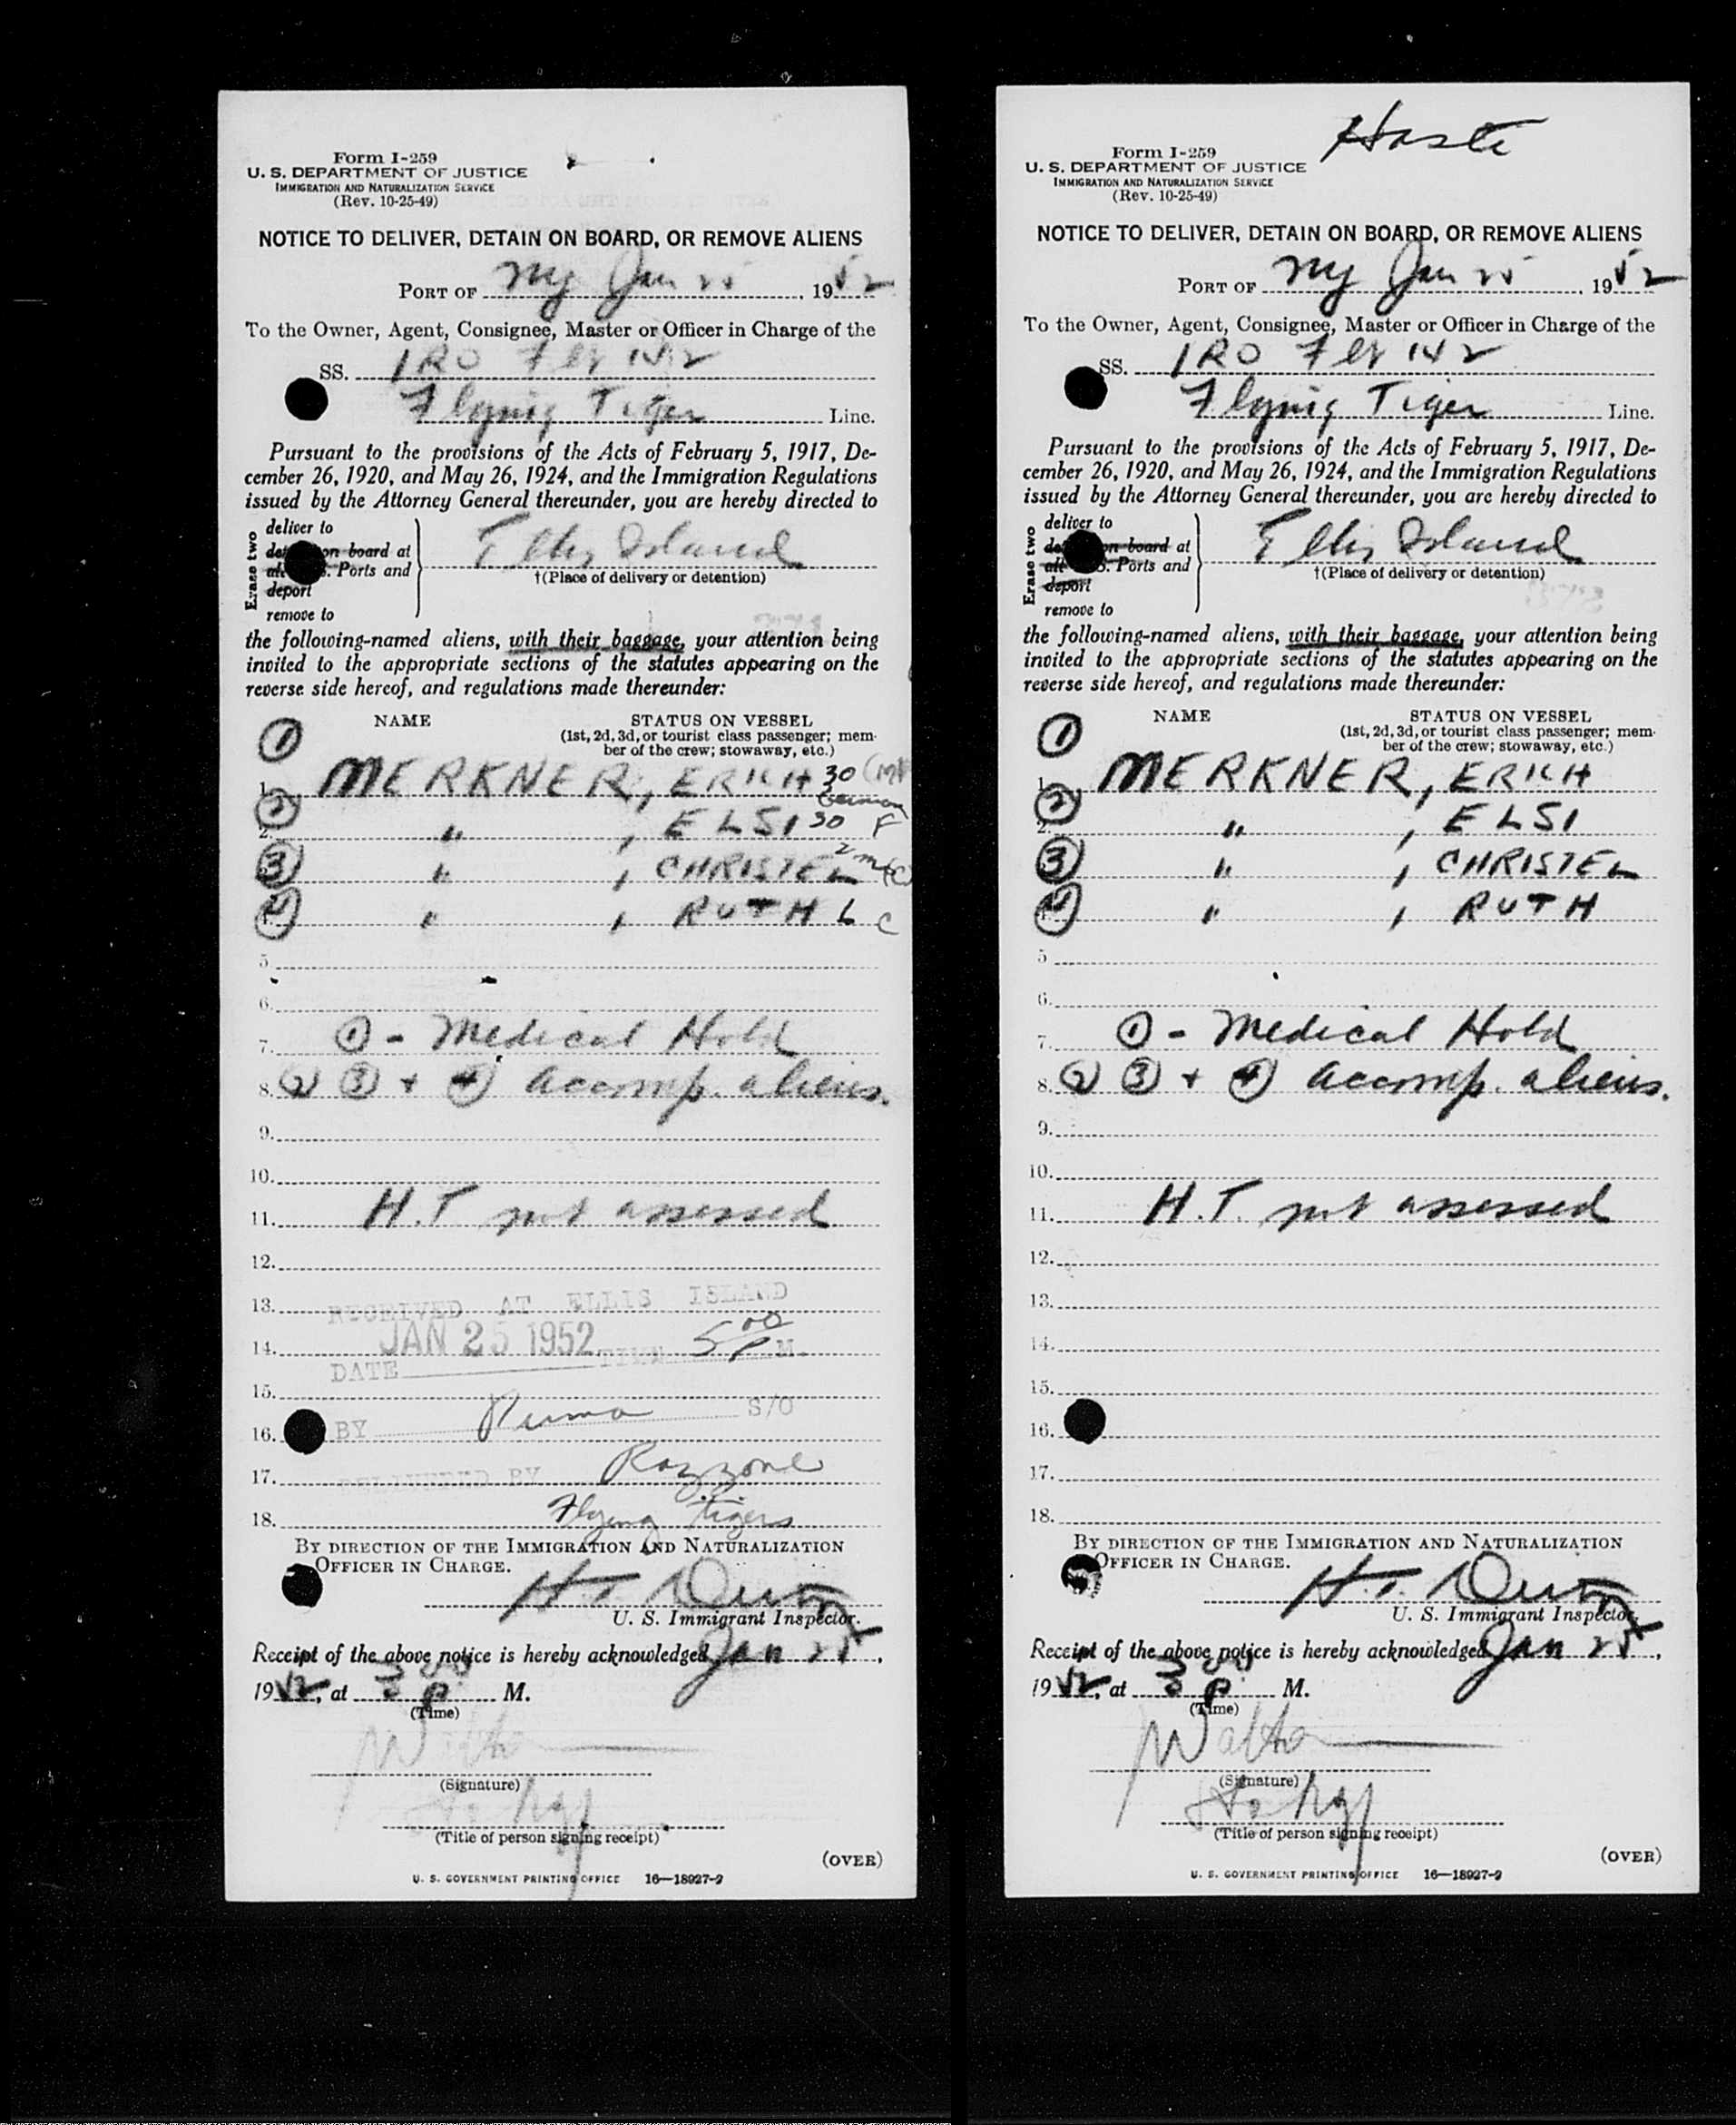 Form I-259
U. S. DEPARTMENT OF JUSTICE
IMMIGRATION AND NATURALIZATION SERVICE
(Rev. 10-25-49)
NOTICE TO DELIVER, DETAIN ON BOARD, OR REMOVE ALIENS
PORT OF NY Jan 25, 1952
To the Owner, Agent, Consignee, Master or Officer in Charge of the
SS. IRO Flt 142
Flying Tiger Line.
Pursuant to the provisions of the Acts of February 5, 1917, De-
cember 26, 1920, and May 26, 1924, and the Immigration Regulations
issued by the Attorney General thereunder, you are hereby directed to
Erase two
deliver to
on board at
Ports and
deport
remove to
Ellis Island
†(Place of delivery or detention)
the following-named aliens, with their baggage, your attention being
invited to the appropriate sections of the statutes appearing on the
reverse side hereof, and regulations made thereunder:
NAME STATUS ON VESSEL
(1st, 2d, 3d, or tourist class passenger; mem-
ber of the crew; stowaway, etc.)
① 1. MERKNER, ERICH 30 (M)
German
② 2. " , ELSI 30 F
③ " , CHRISTEL 2 m (C)
④ " , RUTH 6 C
5.
6.
7. ① - Medical Hold
8. ② ③ + ④ accomp. aliens.
9.
10.
11. H.T. not assessed
12.
13. RECEIVED AT ELLIS ISLAND
14. JAN 25 1952 TIME 5 00 P M.
DATE
15.
16. BY S/O
17. DELIVERED BY Razzone
18. Flying Tigers
BY DIRECTION OF THE IMMIGRATION AND NATURALIZATION
OFFICER IN CHARGE.
U. S. Immigrant Inspector.
Receipt of the above notice is hereby acknowledged Jan 25,
1952, at 3 00 P M.
(Time)
(Signature)
(Title of person signing receipt)
(OVER)
U. S. GOVERNMENT PRINTING OFFICE 16—18927-2
Form I-259
U. S. DEPARTMENT OF JUSTICE
IMMIGRATION AND NATURALIZATION SERVICE
(Rev. 10-25-49)
NOTICE TO DELIVER, DETAIN ON BOARD, OR REMOVE ALIENS
PORT OF NY Jan 25, 1952
To the Owner, Agent, Consignee, Master or Officer in Charge of the
SS. IRO Flt 142
Flying Tiger Line.
Pursuant to the provisions of the Acts of February 5, 1917, De-
cember 26, 1920, and May 26, 1924, and the Immigration Regulations
issued by the Attorney General thereunder, you are hereby directed to
Erase two
deliver to
on board at
Ports and
deport
remove to
Ellis Island
†(Place of delivery or detention)
the following-named aliens, with their baggage, your attention being
invited to the appropriate sections of the statutes appearing on the
reverse side hereof, and regulations made thereunder:
NAME STATUS ON VESSEL
(1st, 2d, 3d, or tourist class passenger; mem-
ber of the crew; stowaway, etc.)
① 1. MERKNER, ERICH
② 2. " , ELSI
③ " , CHRISTEL
④ " , RUTH
5.
6.
7. ① - Medical Hold
8. ② ③ + ④ accomp. aliens.
9.
10.
11. H.T. not assessed
12.
13.
14.
15.
16.
17.
18.
BY DIRECTION OF THE IMMIGRATION AND NATURALIZATION
OFFICER IN CHARGE.
U. S. Immigrant Inspector.
Receipt of the above notice is hereby acknowledged Jan 25,
1952, at 3 00 P M.
(Time)
(Signature)
(Title of person signing receipt)
(OVER)
U. S. GOVERNMENT PRINTING OFFICE 16—18927-2